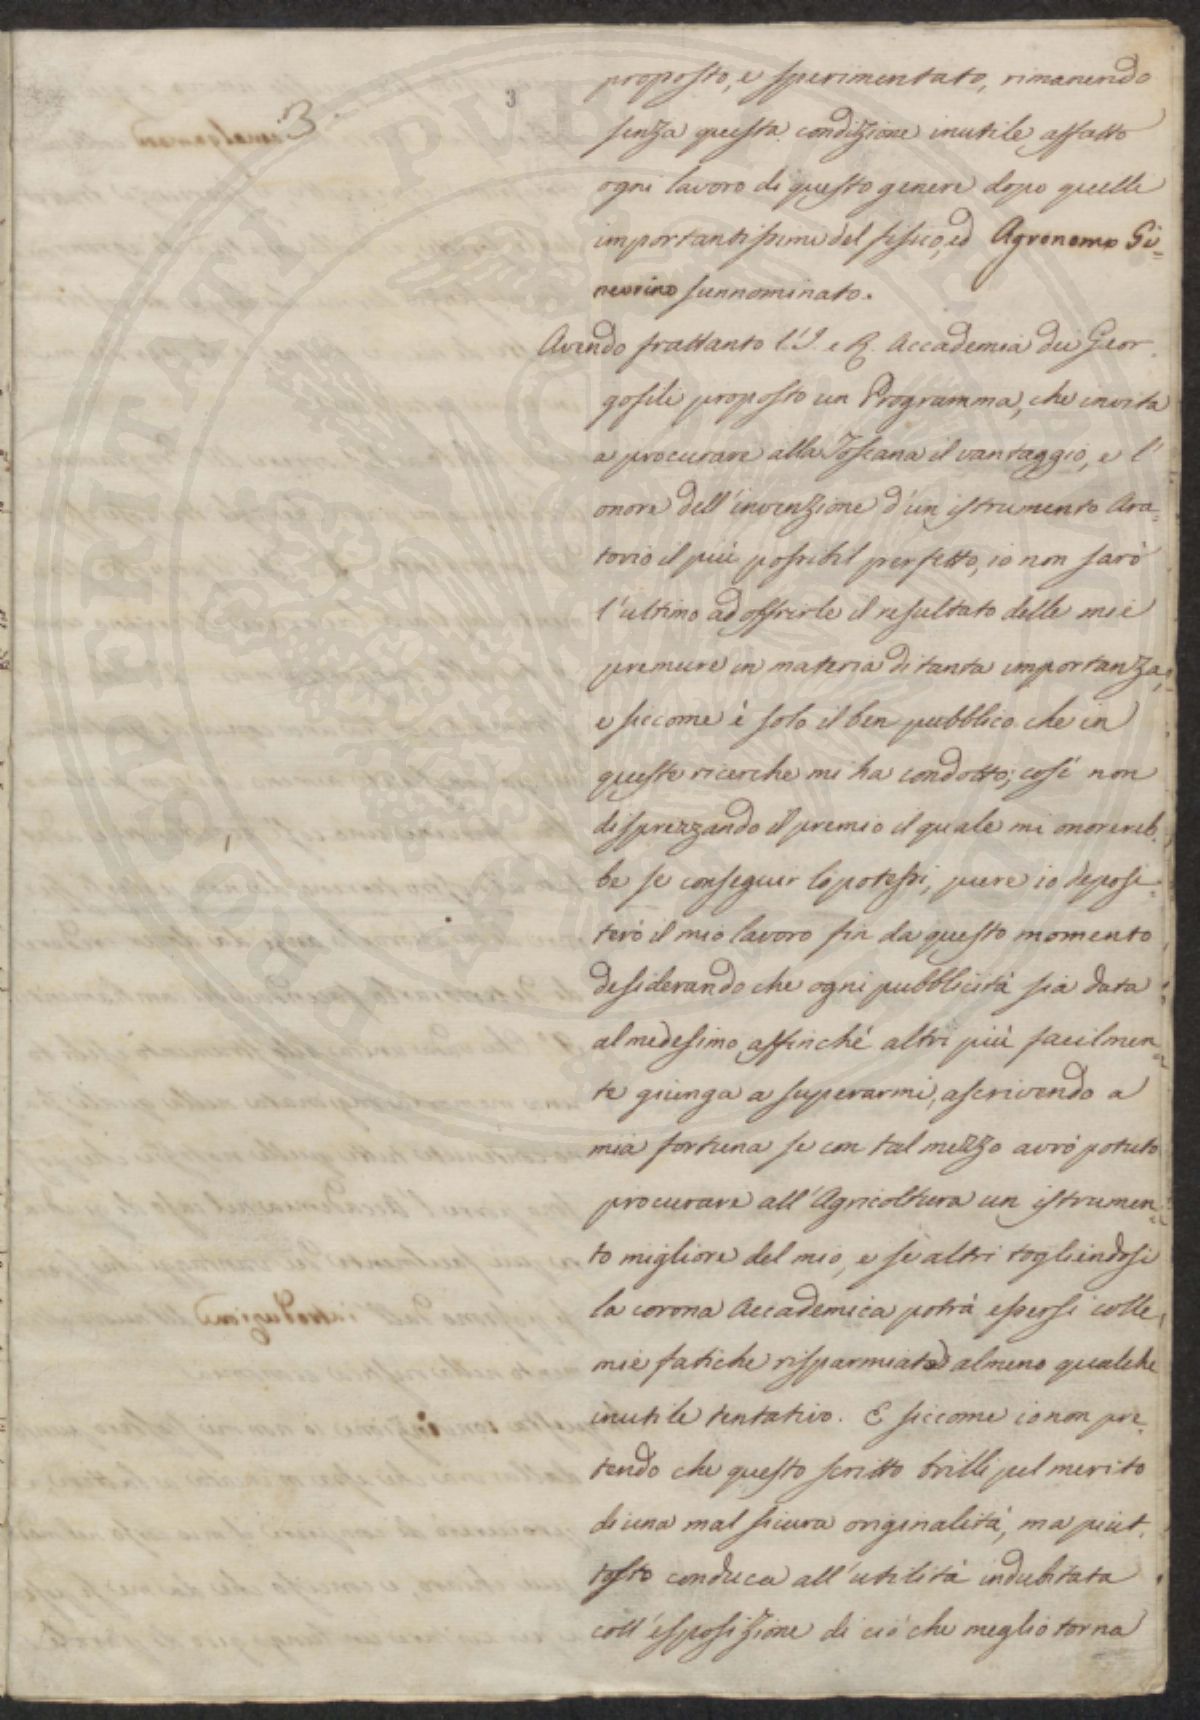 3
3
proposto, e sperimentato, rimanendo
senza questa condizione inutile affatto
ogni lavoro di questo genere dopo quelli
importantissimi del fisico, ed Agronomo Gi=
nevrino sunnominato.
Avendo frattanto l'I. e R. Accademia dei Geor=
gofili proposto un Programma, che invita
a procurare alla Toscana il vantaggio, e l'
onore dell'invenzione d'un istrumento Ara=
torio il più possibil perfetto, io non sarò
l'ultimo ad offrirle il resultato delle mie
premure in materia di tanta importanza,
e siccome è solo il ben pubblico che in
queste ricerche mi ha condotto; così non
disprezzando il premio il quale mi onorereb=
be se conseguir lo potessi, pure io deposi=
terò il mio lavoro fin da questo momento
desiderando che ogni pubblicità sia data
al medesimo affinché altri più facilmen=
te giunga a superarmi, ascrivendo a
mia fortuna se con tal mezzo avrò potuto
procurare all'Agricoltura un istrumen=
to migliore del mio, e se altri togliendosi
la corona Accademica potrà essersi colle
mie fatiche risparmiato almeno qualche
inutile tentativo. E siccome io non pre=
tendo che questo scritto brilli pel merito
di una mal sicura originalità, ma piut=
tosto conduca all'utilità indubitata
coll'esposizione di ciò che meglio torna